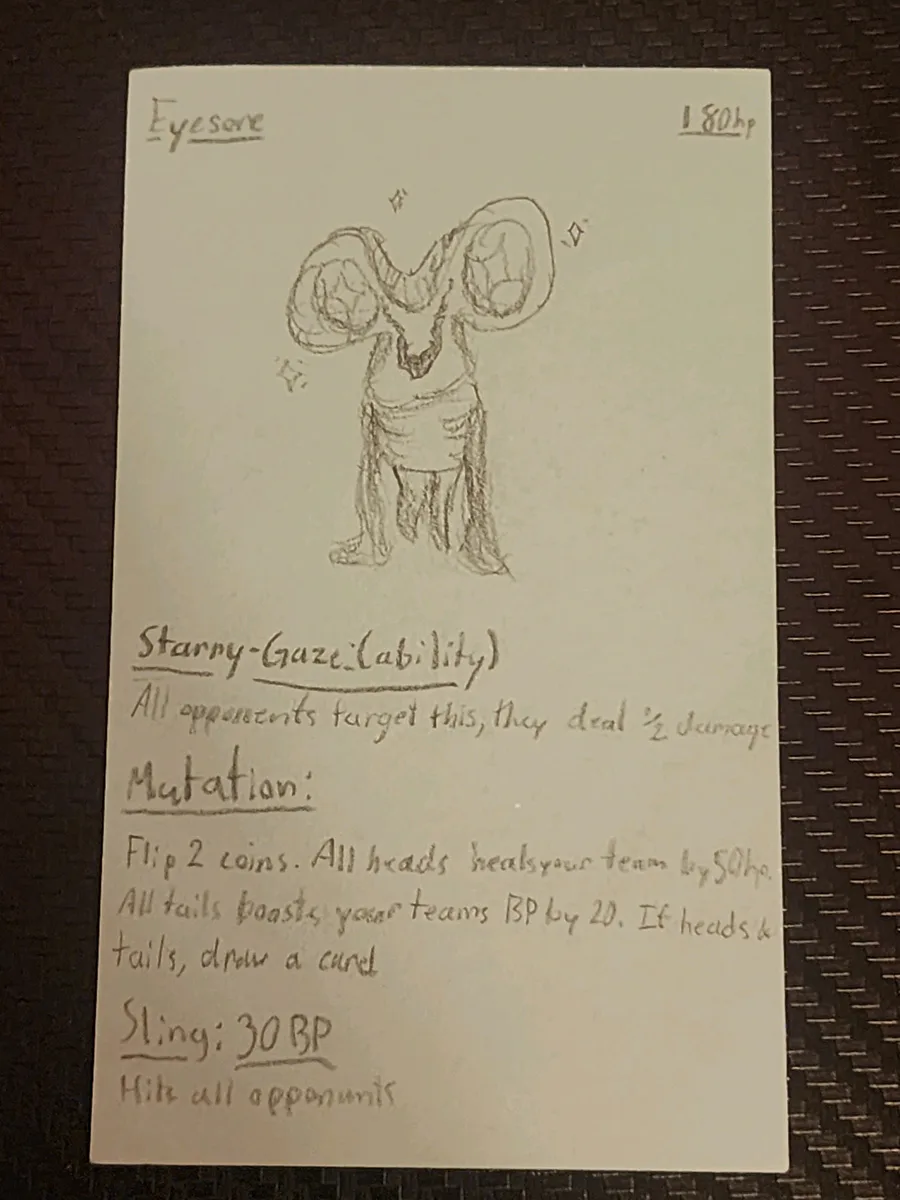 Eyesore
180hp
Starry-Gaze:(ability)
All opponents target this, they deal 1/2 damage
Mutation:
Flip 2 coins. All heads heals your team by 50hp.
All tails boasts your teams BP by 20. If heads &
tails, draw a card
Sling: 30 BP
Hits all opponunts